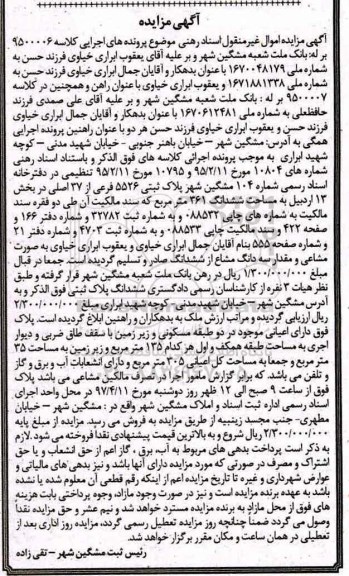 آگهی مزایده
آگهی مزایده اموال غیرمنقول اسناد رهنی موضوع پرونده های اجرایی کلاسه ۹۵۰۰۰۰۶
بر له: بانک ملت شعبه مشگین شهر و بر علیه آقای یعقوب ابراری خیاوی فرزند حسن به
شماره ملی ۱۶۷۰۰۴۸۱۷۹ با عنوان بدهکار و آقایان جمال ابراری خیاوی فرزند حسن به
شماره ملی ۱۶۷۱۸۸۱۳۳۸ و یعقوب ابراری خیاوی با عنوان راهن و همچنین در کلاسه
۹۵۰۰۰۰۷ بر له : بانک ملت شعبه مشگین شهر و بر علیه آقای علی صمدی فرزند
حافظعلی به شماره ملی ۱۶۷۰۶۱۲۴۸۱ با عنوان بدهکار و آقایان جمال ابراری خیاوی
فرزند حسن و یعقوب ابراری خیاوی فرزند حسن هر دو با عنوان راهنین پرونده اجرایی
همگی به آدرس: مشگین شهر – خیابان باهنر جنوبی – خیابان شهید مدنی – کوچه
شهید ابراری به موجب پرونده اجرائی کلاسه های فوق الذکر و باستناد اسناد رهنی
شماره های ۱۰۸۰۴ مورخ ۹۵/۲/۱۱ و ۱۰۷۹۵ مورخ ۹۵/۲/۱۱ تنظیمی در دفترخانه
اسناد رسمی شماره ۱۰۴ مشگین شهر پلاک ثبتی ۵۵۲۶ فرعی از ۳۷ اصلی در بخش
۱۳ اردبیل به مساحت ششدانگ ۳۶۱ متر مربع که سند مالکیت آن طی دو فقره سند
مالکیت به شماره های چاپی ۰۸۸۵۳۳ و به شماره ثبت ۳۲۷۸۲ و شماره دفتر ۱۶۶ و
صفحه ۴۲۲ وسند مالکیت چاپی ۰۸۸۵۳۳ و به شماره ثبت ۴۷۰۳ و شماره دفتر ۲۱
و شماره صفحه ۵۵۵ بنام آقایان جمال ابراری خیاوی و یعقوب ابراری خیاوی به صورت
مشاعی و مقدار ۳ دانگ مشاع از ششدانگ صادر و تسلیم گردیده است. جمعا در قبال
مبلغ ۱/۳۰۰/۰۰۰/۰۰۰ ریال در رهن بانک ملت شعبه مشگین شهر قرار گرفته و طبق
نظر هیات ۳ نفره از کارشناسان رسمی دادگستری ششدانگ پلاک ثبتی فوق الذکر و به
آدرس مشگین شهر – خیابان شهید مدنی – کوچه شهید ابراری مبلغ ۲/۳۰۰/۰۰۰/۰۰۰
ریال ارزیابی گردیده و مراتب ارزش ملک به بدهکاران و راهنین ابلاغ گردیده است. پلاک
فوق دارای اعیانی موجود در دو طبقه مسکونی و زیر زمین با سقف طاق ضربی و دیوار
آجری به مساحت طبقه همکف و اول هر کدام ۱۳۵ متر مربع و زیر زمین به مساحت ۳۵
متر مربع و جمعا به مساحت کل اصلی ۳۰۵ متر مربع و دارای انشعابات آب و برق و گاز
و تلفن می باشد. که برابر گزارش مامور اجرا در تصرف مالکین مشاعی می باشد پلاک
فوق از ساعت ۹ صبح الی ۱۲ ظهر روز دوشنبه مورخ ۹۷/۴/۱۱ در محل واحد اجرای
اسناد رسمی اداره ثبت اسناد و املاک مشگین شهر واقع در : مشگین شهر – خیابان
مطهری– جنب مجسد زینبیه از طریق مزایده به فروش می رسد. مزایده از مبلغ پایه
۲/۳۰۰/۰۰۰/۰۰۰ ریال شروع و به بالاترین قیمت پیشنهادی نقدا فروخته می شود. لازم
به ذکر است پرداخت بدهی های مربوطه به آب، برق ، گاز اعم از حق انشعاب و یا حق
اشتراک و مصرف در صورتی که مورد مزایده دارای آنها باشد و نیز بدهی های مالیاتی و
عوارض شهرداری و غیره تا تاریخ مزایده اعم از اینکه رقم قطعی آن معلوم شده یا نشده
باشد به عهده برنده مزایده است و نیز در صورت وجود مازاد، وجوه پرداختی بابت هزینه
های فوق از محل مازاد به برنده مزایده مسترد خواهد شد و نیم عشر و حق مزایده نقدا
وصول می گردد ضمنا چنانچه روز مزایده تعطیل رسمی گردد، مزایده روز اداری بعد از
تعطیلی در همان ساعت و مکان مقرر برگزار خواهد شد.
رئیس ثبت مشگین شهر – تقی زاده